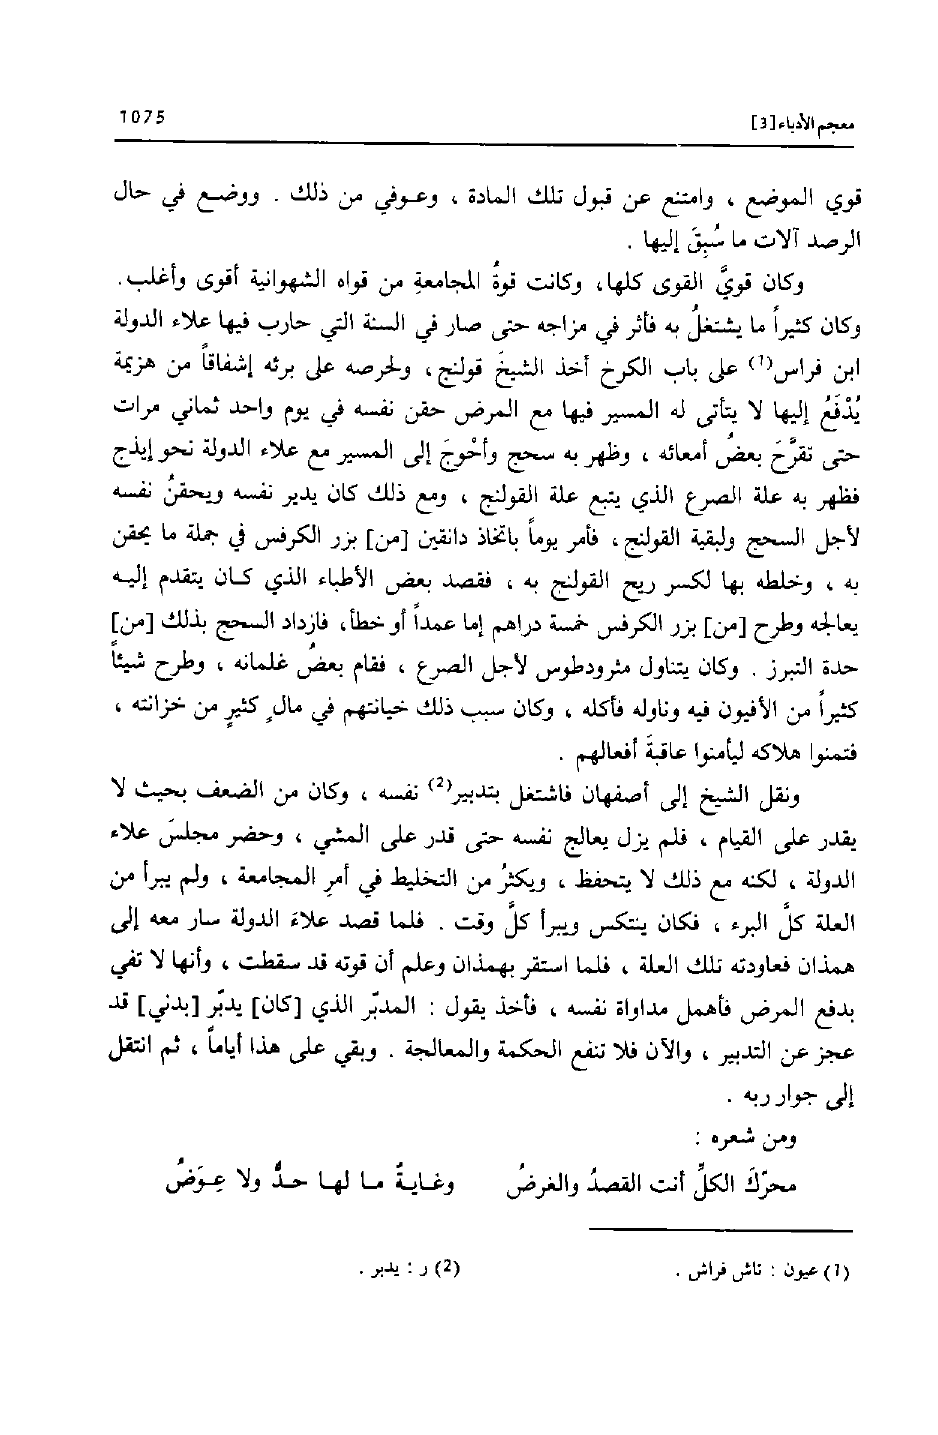 معجم الأدباء [3]
1075
قوي الموضع ، وامتنع عن قبول تلك المادة ، وعوفي من ذلك . ووضع في حال
الرصد آلات ما سُبِقَ إليها .
وكان قويَّ القوى كلها، وكانت قوةُ المجامعةِ من قواه الشهوانية أقوى وأغلب.
وكان كثيراً ما يشتغلُ به فأثر في مزاجه حتى صار في السنة التي حارب فيها علاء الدولة
ابن فراس(1) على باب الكرخ أخذ الشيخَ قولنج، ولحرصه على برئه إشفاقاً من هزيمة
يُدْفَعُ إليها لا يتأتى له المسير فيها مع المرض حقن نفسه في يوم واحد ثماني مرات
حتى تقرَّحَ بعضُ أمعائه ، وظهر به سحج وأُحْوِجَ إلى المسير مع علاء الدولة نحو إيذج
فظهر به علة الصرع الذي يتبع علة القولنج ، ومع ذلك كان يدير نفسه ويحقنُ نفسه
لأجل السحج ولبقية القولنج، فأمر يوماً باتخاذ دانقين [من] بزر الكرفس في جملة ما يحقن
به ، وخلطه بها لكسر ريح القولنج به ، فقصد بعض الأطباء الذي كان يتقدم إليه
يعالجه وطرح [من] بزر الكرفس خمسة دراهم إما عمداً أو خطأ، فازداد السحج بذلك [من]
حدة التبرز . وكان يتناول مثرودطوس لأجل الصرع ، فقام بعضُ غلمانه ، وطرح شيئاً
كثيراً من الأفيون فيه وناوله فأكله ، وكان سبب ذلك خيانتهم في مالٍ كثيرٍ من خزانته ،
فتمنوا هلاكه ليأمنوا عاقبةَ أفعالهم .
ونقل الشيخ إلى أصفهان فاشتغل بتدبير(2) نفسه ، وكان من الضعف بحيث لا
يقدر على القيام ، فلم يزل يعالج نفسه حتى قدر على المشي ، وحضر مجلسَ علاء
الدولة ، لكنه مع ذلك لا يتحفظ ، ويكثرُ من التخليط في أمرِ المجامعة ، ولم يبرأ من
العلة كلَّ البرء ، فكان ينتكس ويبرأ كلَّ وقت . فلما قصد علاءَ الدولة سار معه إلى
همذان فعاودته تلك العلة ، فلما استقر بهمذان وعلم أن قوته قد سقطت ، وأنها لا تفي
بدفع المرض فأهمل مداواة نفسه ، فأخذ يقول : المدبّر الذي [كان] يدبّر [بدني] قد
عجز عن التدبير ، والآن فلا تنفع الحكمة والمعالجة . وبقي على هذا أياماً ، ثم انتقل
إلى جوار ربه .
ومن شعره :
محرّكَ الكلِّ أنت القصدُ والغرضُ وغايةٌ ما لها حدٌّ ولا عِوَضُ
(1) عيون : تاش فراش .
(2) ر : يدبر .